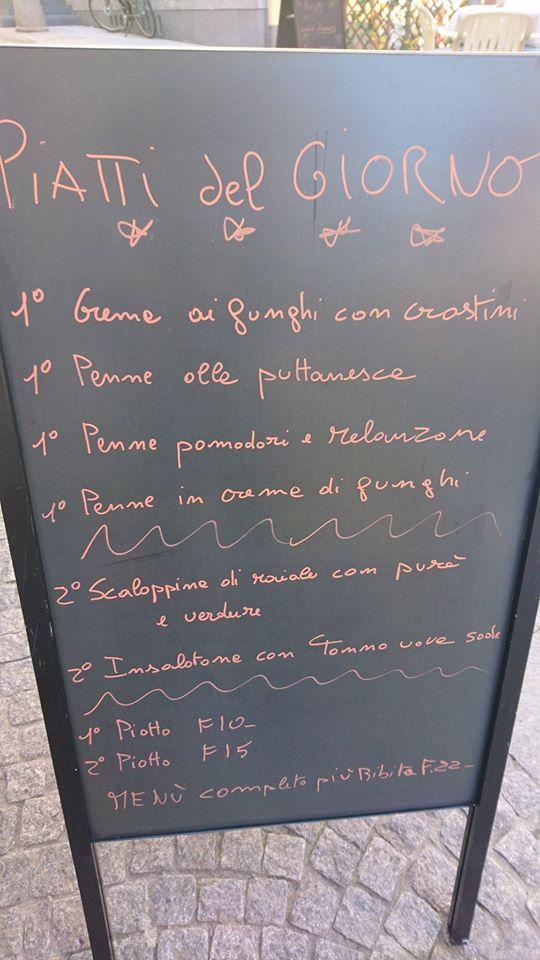 PIATTI del GIORNO
1° Creme ai funghi con crostini
1° Penne alla puttanesca
1° Penne pomodori e melanzane
1° Penne in creme di funghi
2° Scaloppine di maiale con purè
e verdure
2° Insalatone con Tonno uova sode
1° Piatto F10-
2° Piatto F15
MENÙ completo più Bibita F.22-